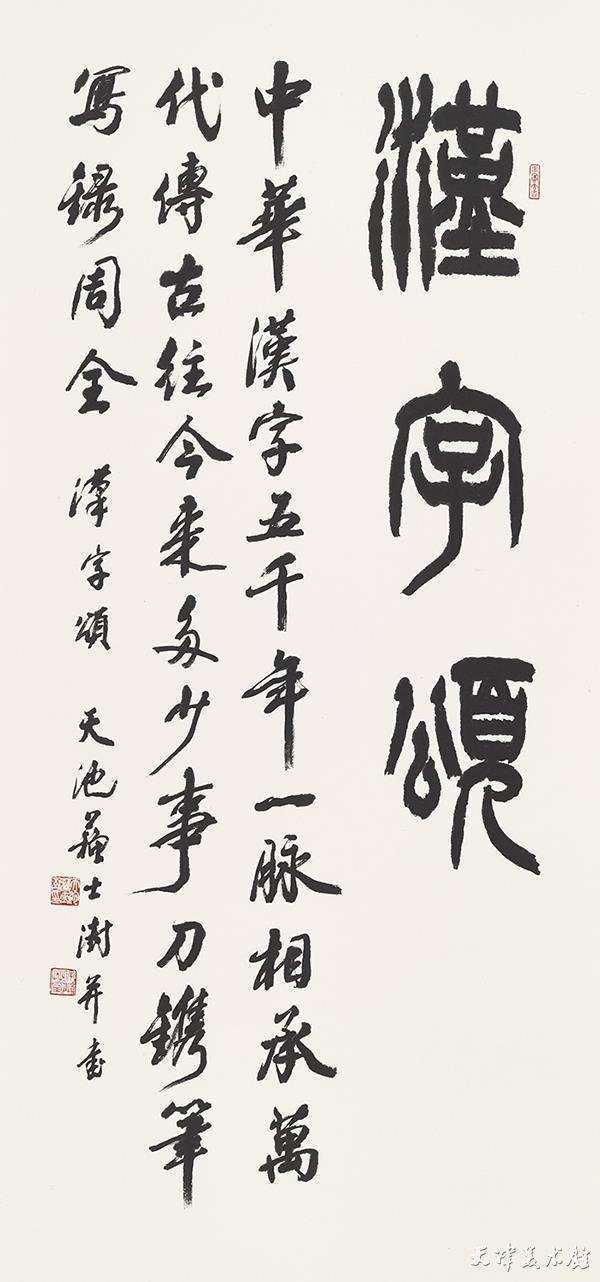 漢字頌
中華漢字五千年一脉相承萬
代傳古往今來多少事刀鐫筆
寫録周全 漢字頌 天池蘇士澍并書
天津美术馆